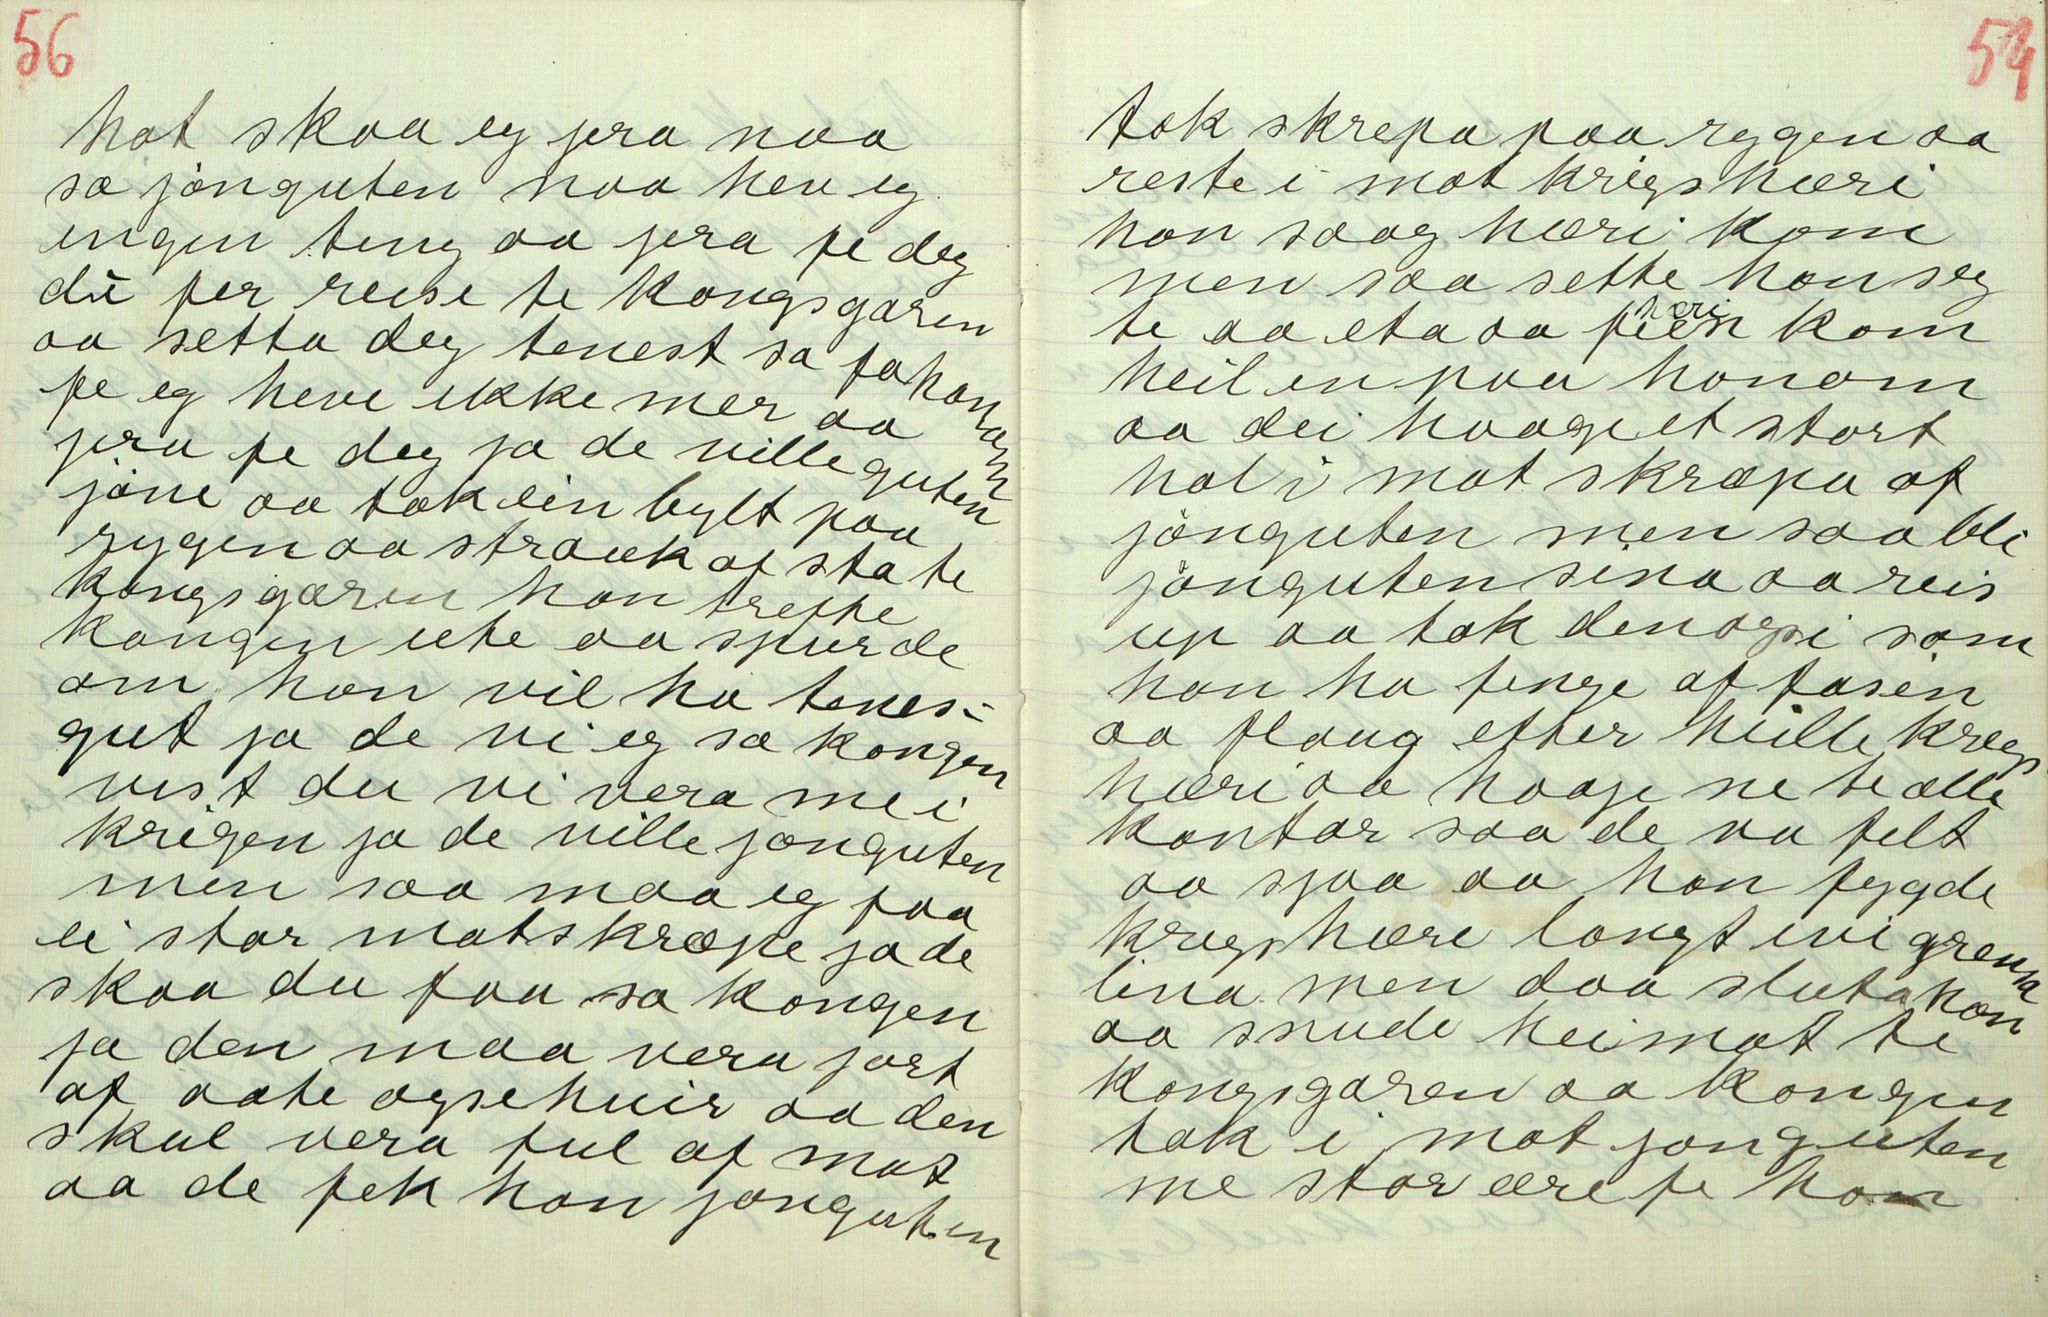 56
hot skaa eg jera naa
sa jonguten naa hev eg
ingen ting aa jera fe deg
du fer reise te kongsgaren
aa setta deg tenest sa fahanom
fe eg heve ikke mer aa
jera fe deg ja de ville guten
jöne aa tok ein bylt paa
rygen aa straak af sta te
kongsgæren han trefte
kongen ute aa spurde
om han vil ha tenes-
gut ja de vi eg sa kongen
vist du vi vera me i
krigen ja de ville jonguten
men saa maa eg faa
ei stor matskræpe ja de
skaa du faa sa kongen
ja den maa vera jort
af aate ogsehuir aa den
skul vera ful af mat
aa de fek han jonguten
57
tok skrepa paa rygen aa
reste i mot krigshæri
han saag hæri kom
men saa sette han seg
te aa eta aa hæri kom
heil en paa honom
aa dei haage et stort
hol i mot skræpa af
jonguten men saa bli
jonguten sina aa reis
up aa tok den som
han ha fenge af fasen
aa flaug etter heille kregs
hæri aa haage ne te alle
kantar saa de va felt
aa sjaa aa han fygde
kregshære langt ivi grensa
lina men daa sluta han
aa snude heimat te
kongsgaren aa kongen
tok i mot jonguten
me stor ære fe han